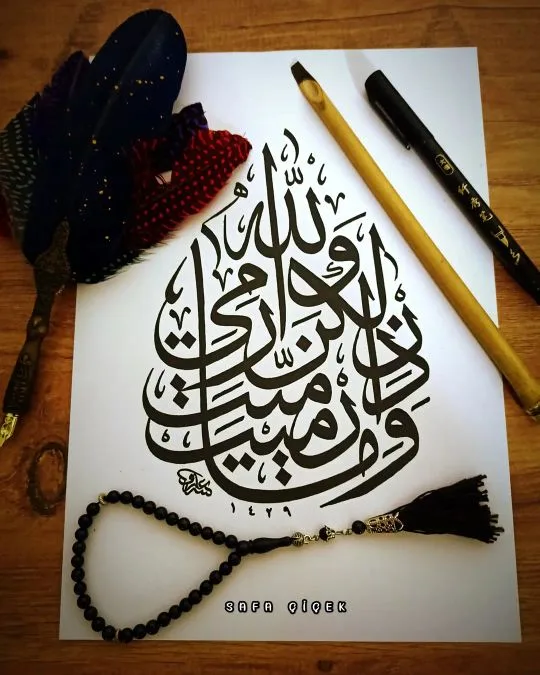 وما رميت إذ رميت ولكن الله رمى
١٤٢٩
SAFA ÇİÇEK